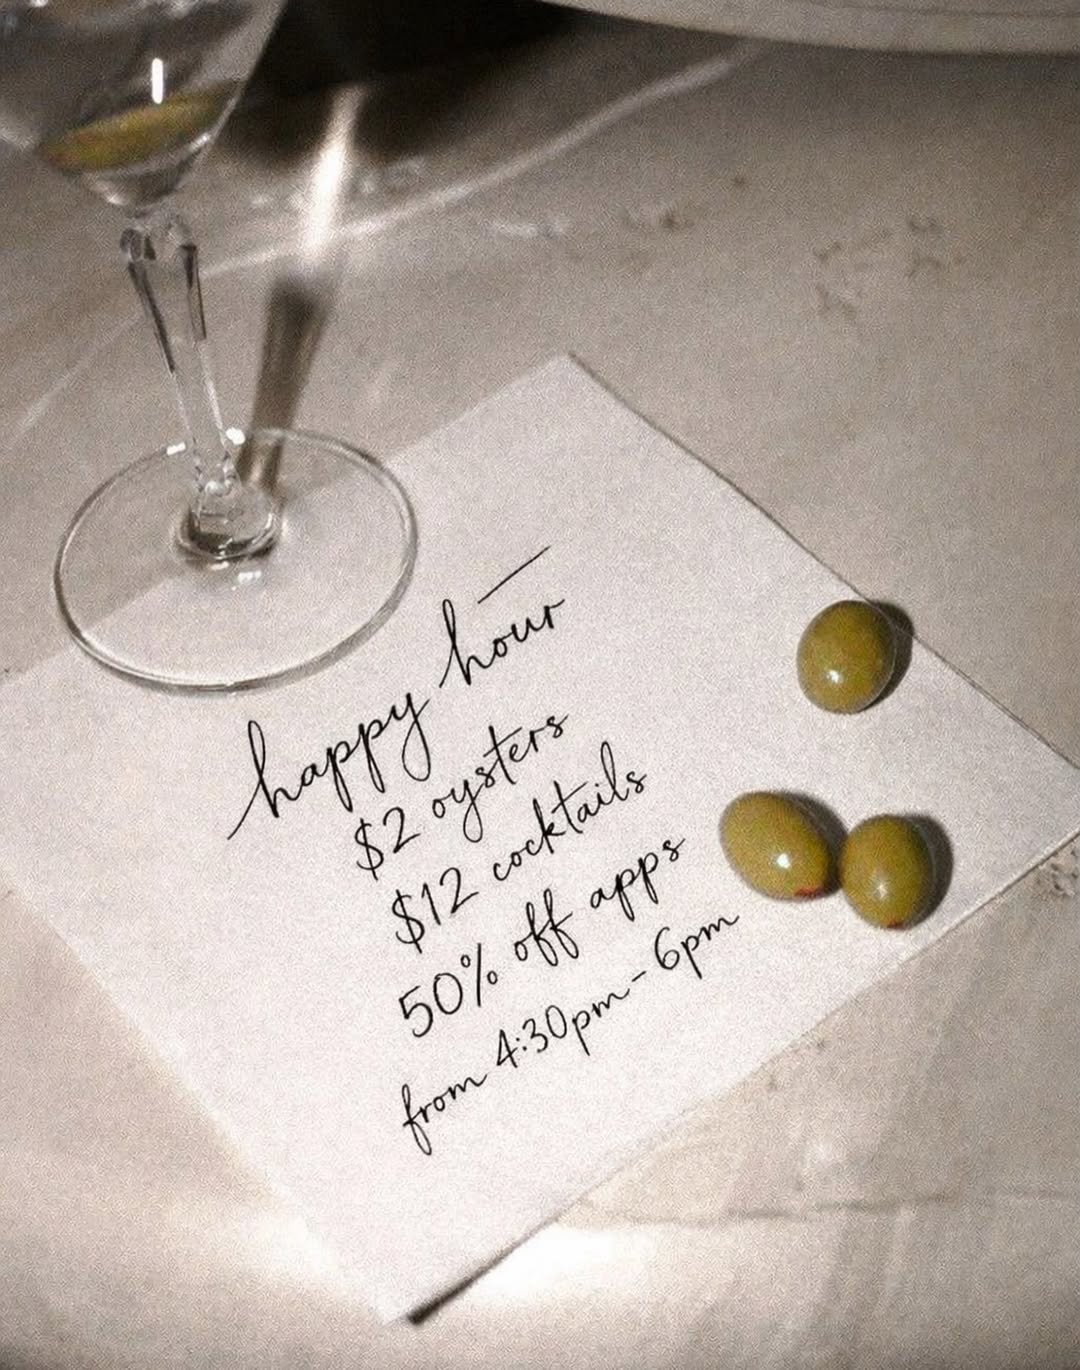 happy hour
$2 oysters
$12 cocktails
50% off apps
from 4:30pm - 6pm